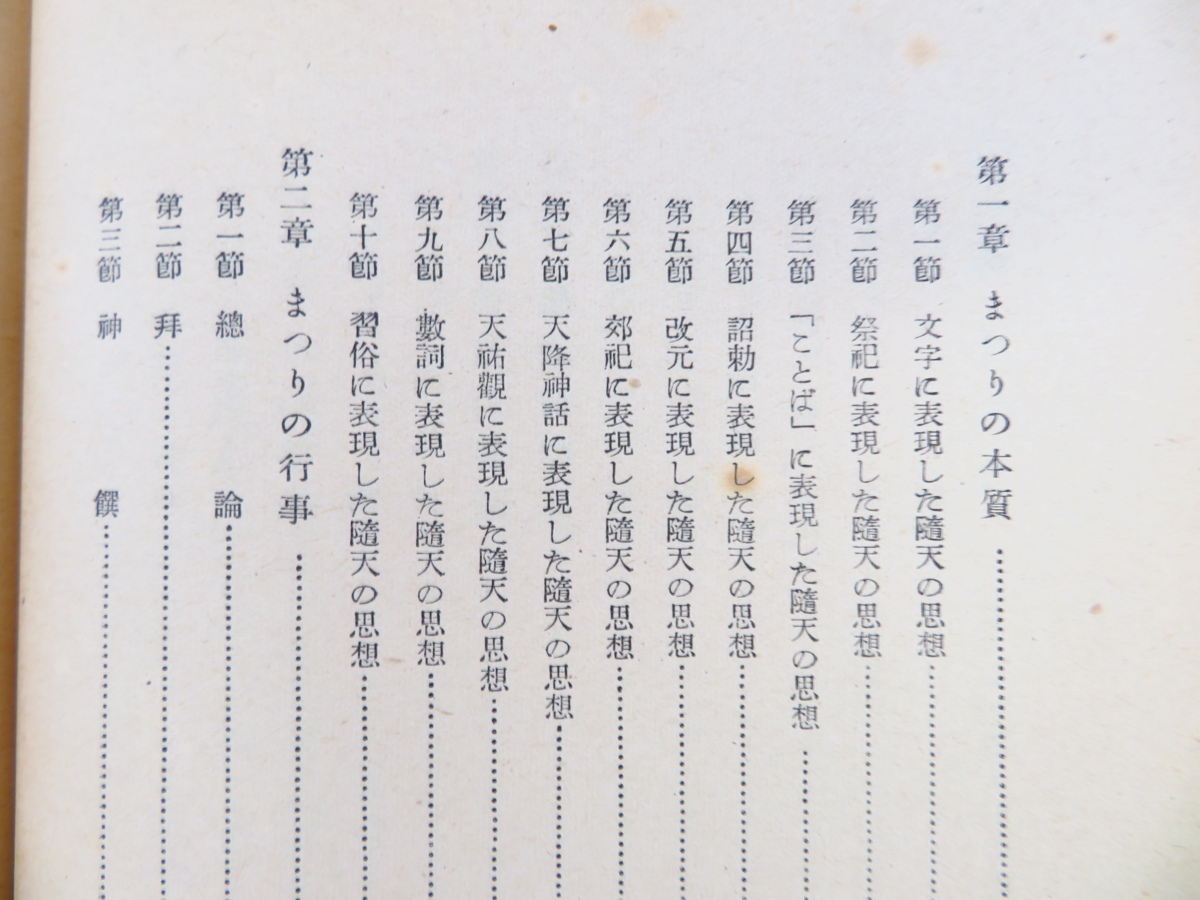 第一章 まつりの本質……………………
第一節 文字に表現した隨天の思想……………………
第二節 祭祀に表現した隨天の思想……………………
第三節 「ことば」に表現した隨天の思想……………………
第四節 詔勅に表現した隨天の思想……………………
第五節 改元に表現した隨天の思想……………………
第六節 郊祀に表現した隨天の思想……………………
第七節 天降神話に表現した隨天の思想……………………
第八節 天祐觀に表現した隨天の思想……………………
第九節 數詞に表現した隨天の思想……………………
第十節 習俗に表現した隨天の思想……………………
第二章 まつりの行事……………………
第一節 總論……………………
第二節 拜……………………
第三節 神饌……………………